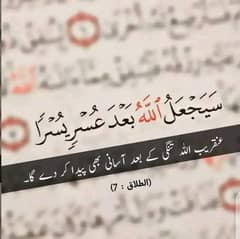 سَيَجْعَلُ اللَّهُ بَعْدَ عُسْرٍ يُسْرًا
عنقریب اللہ تنگی کے بعد آسانی بھی پیدا کر دے گا۔
(الطلاق : 7)